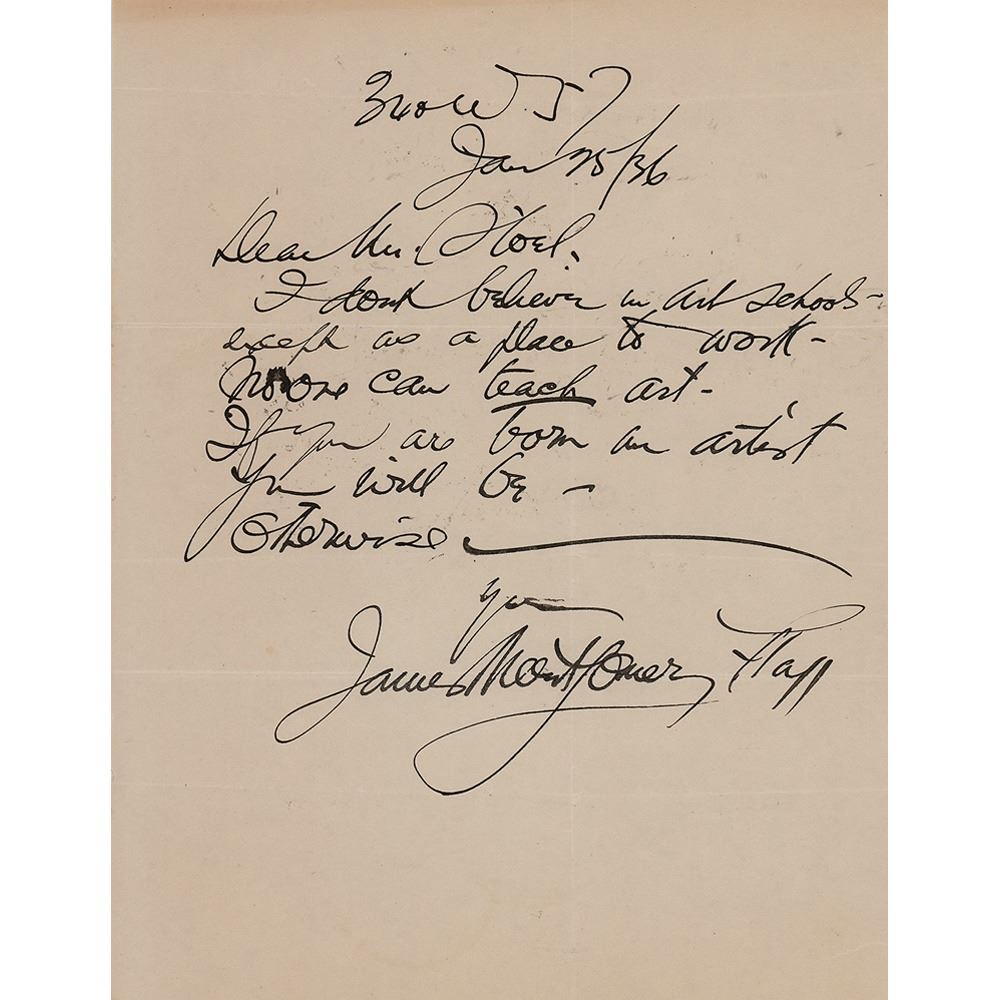 340 W 57
Jan 25/36
Dear Mr.
I dont believe in art schools -
except as a place to work -
No one can teach art -
If you are born an artist
you will be -
otherwise —
James Montgomery Flagg